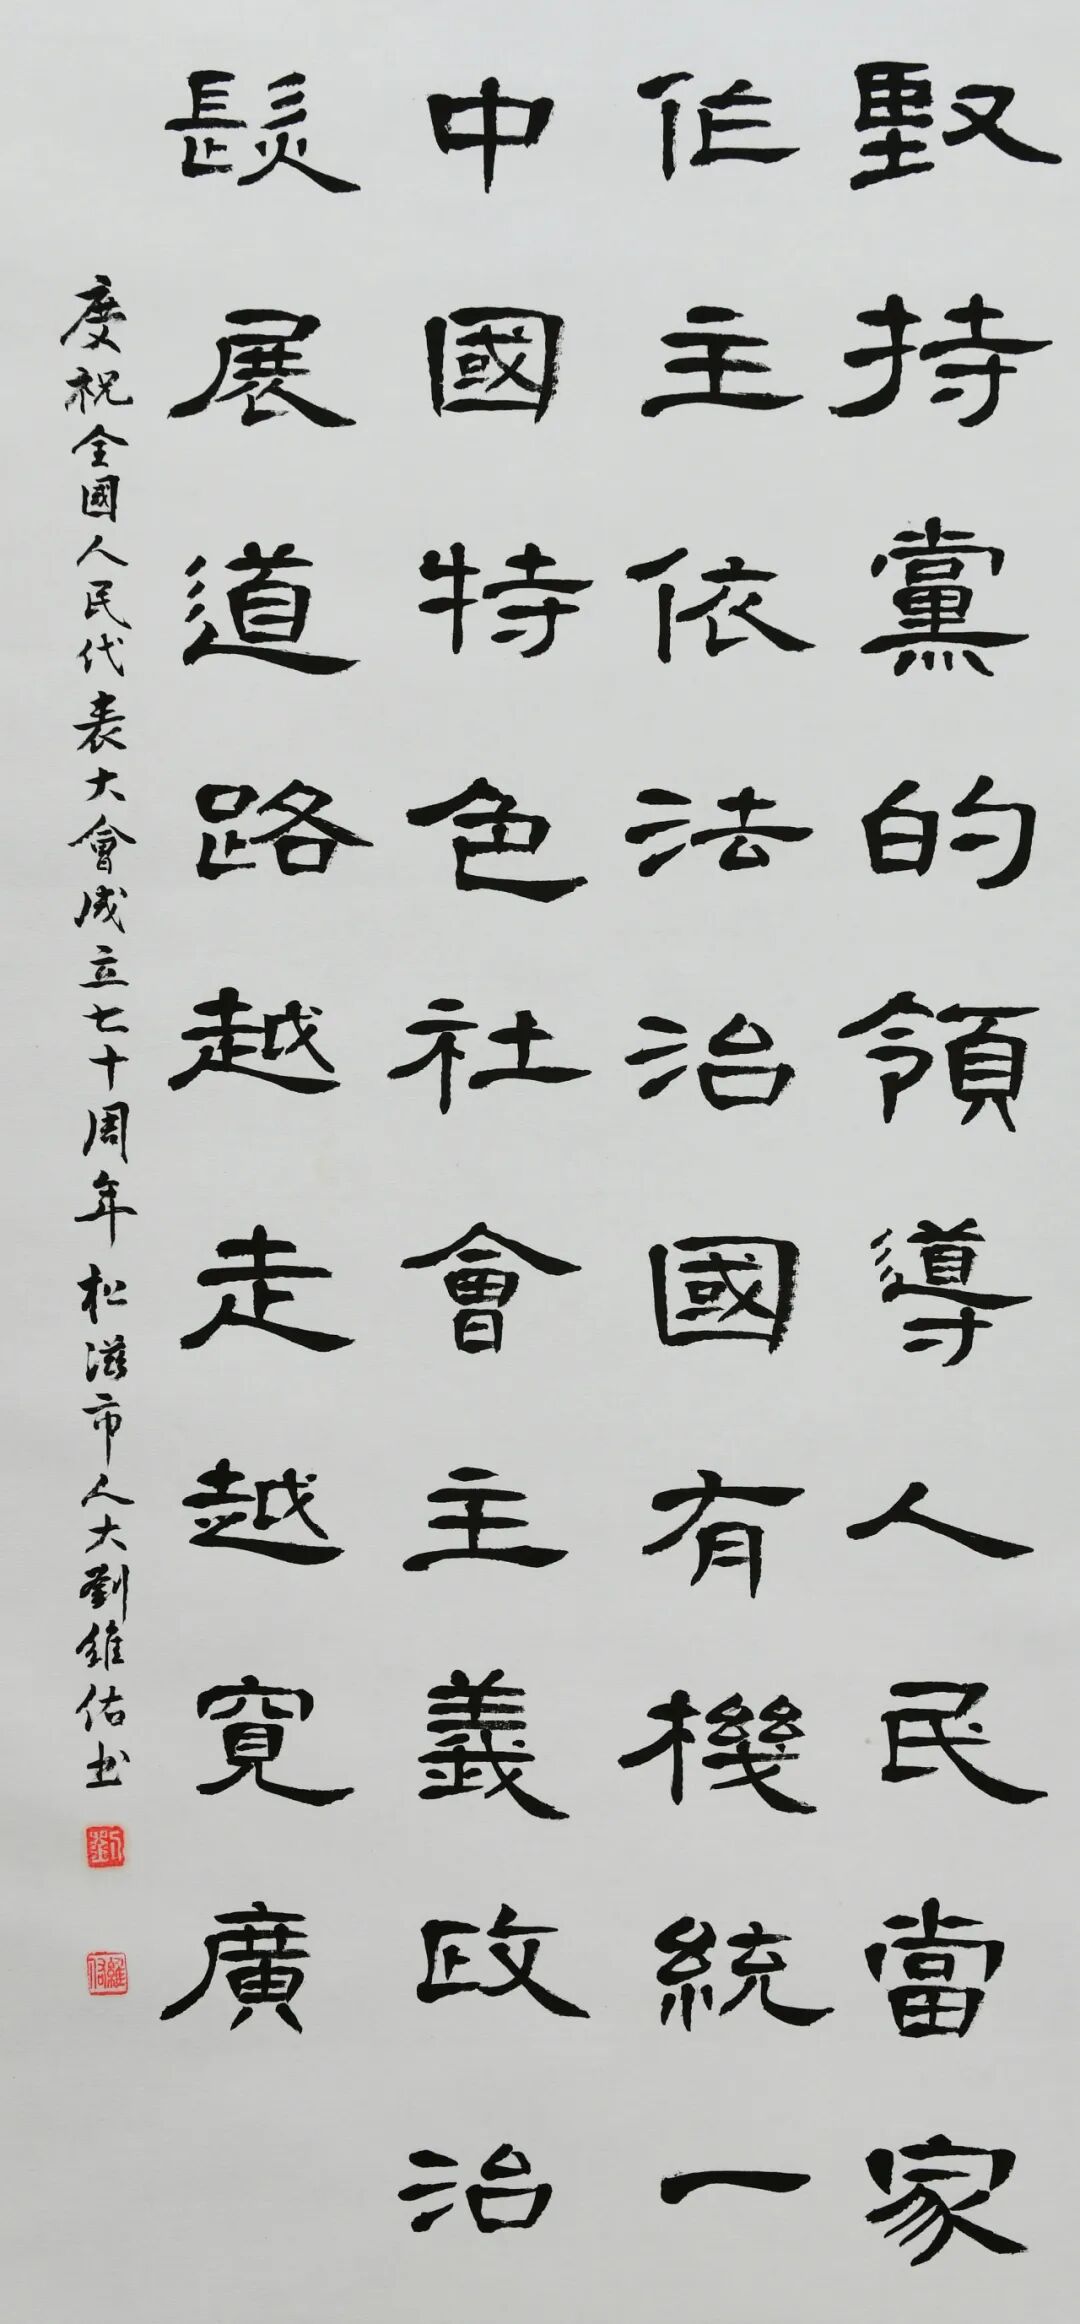 堅持黨的領導人民當家
作主依法治國有機統一
中國特色社會主義政治
髮展道路越走越寬廣
慶祝全國人民代表大會成立七十周年 松滋市人大劉維佑書
劉
維佑